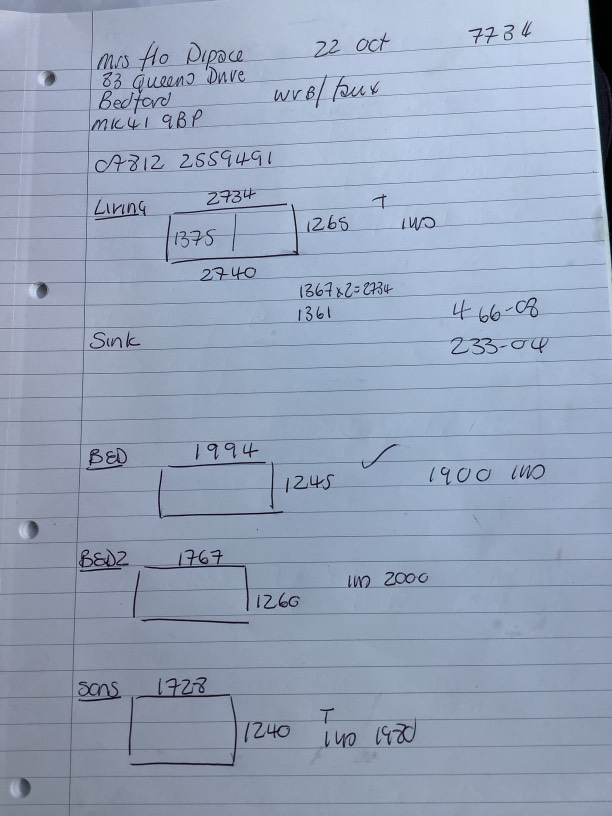 Mrs Flo Dipace 22 Oct 7734
83 Queens Drive
Bedford WVB/faux
MK41 9BP
07812 2559491
Living 2734 T
1375 1265 IWO
2740
1367x2=2734
1361 466-08
Sink 233-04
BED 1994 ✓
1245 1900 IWO
BED2 1767
1260 IWO 2000
Sons 1728
1240 T
IWO